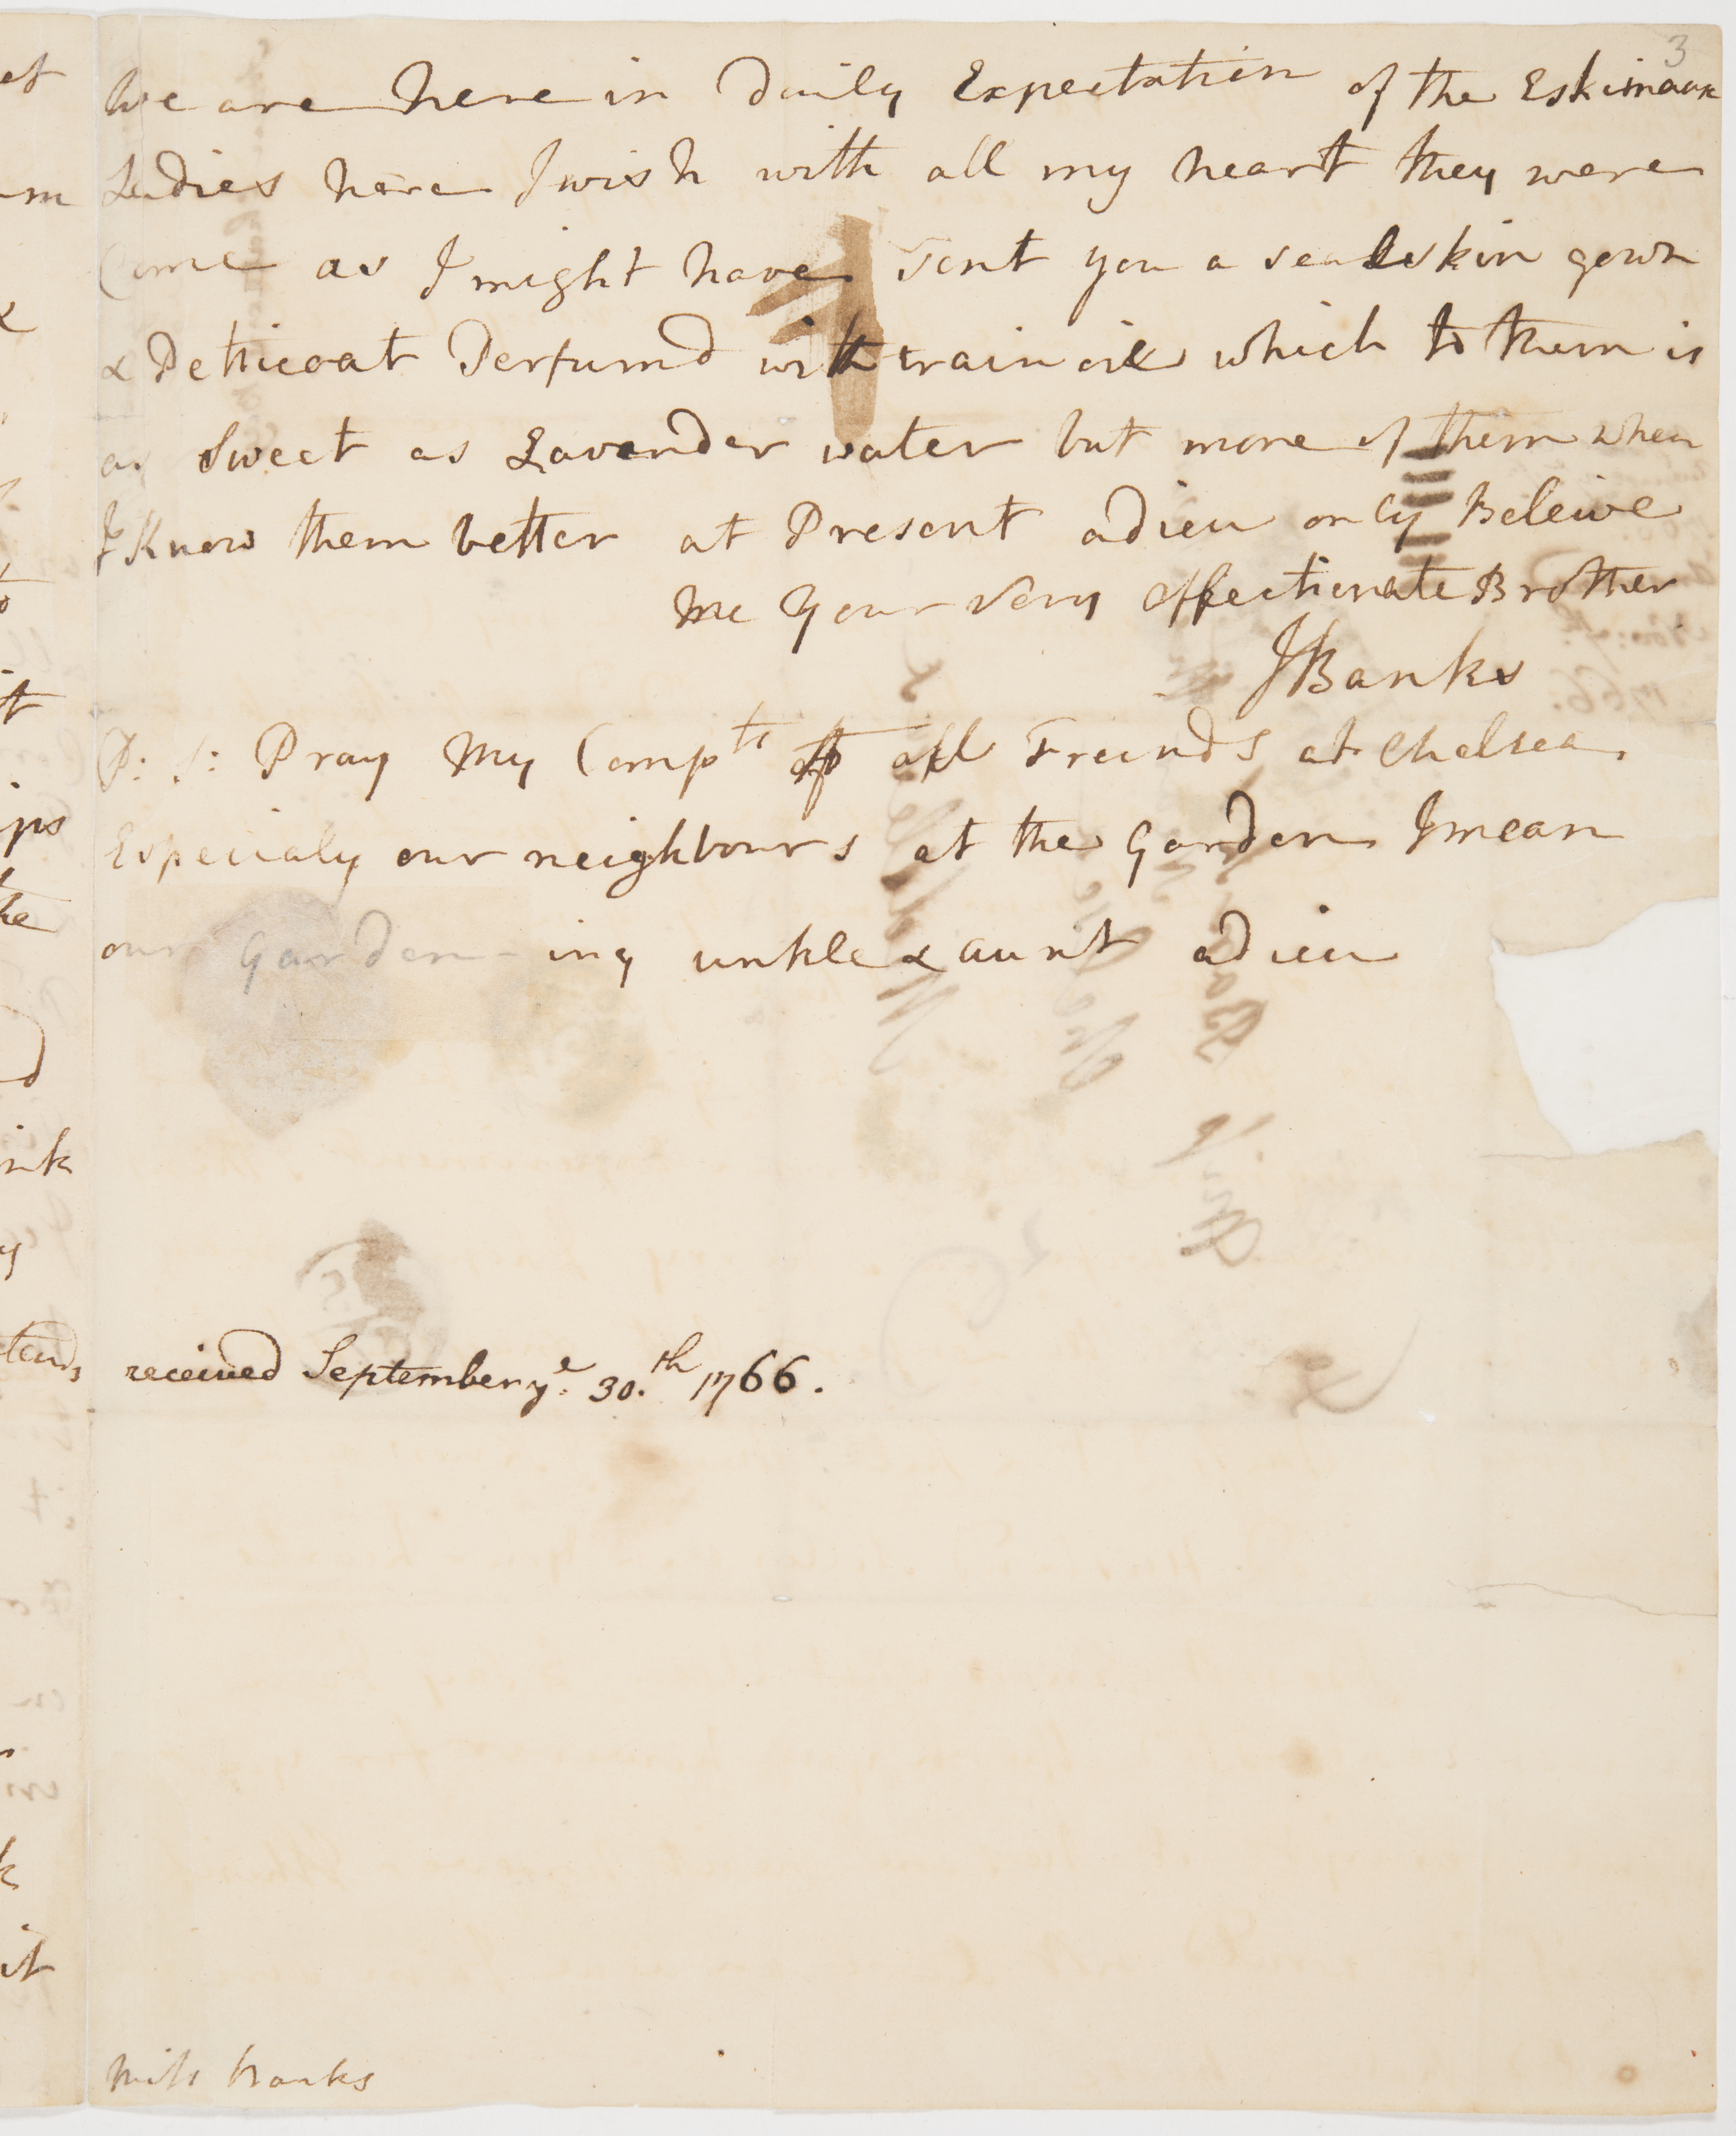 3
We are here in Daily Expectation of the Eskimaux
Ladies here I wish with all my heart they were
Come as I might have sent you a sealskin gown
& Petticoat Perfumd with train oil which to them is
as Sweet as Lavender water but more of them when
I Know them better at Present adieu only Beleive
me Your very affectionate Brother
JBanks
P: S: Pray My Compts to all Freinds at Chelsea
Especialy our neighbours at the Garden I mean
our Garden-ing unkle & aunt adieu
received September ye. 30.th 1766.
Miss Banks